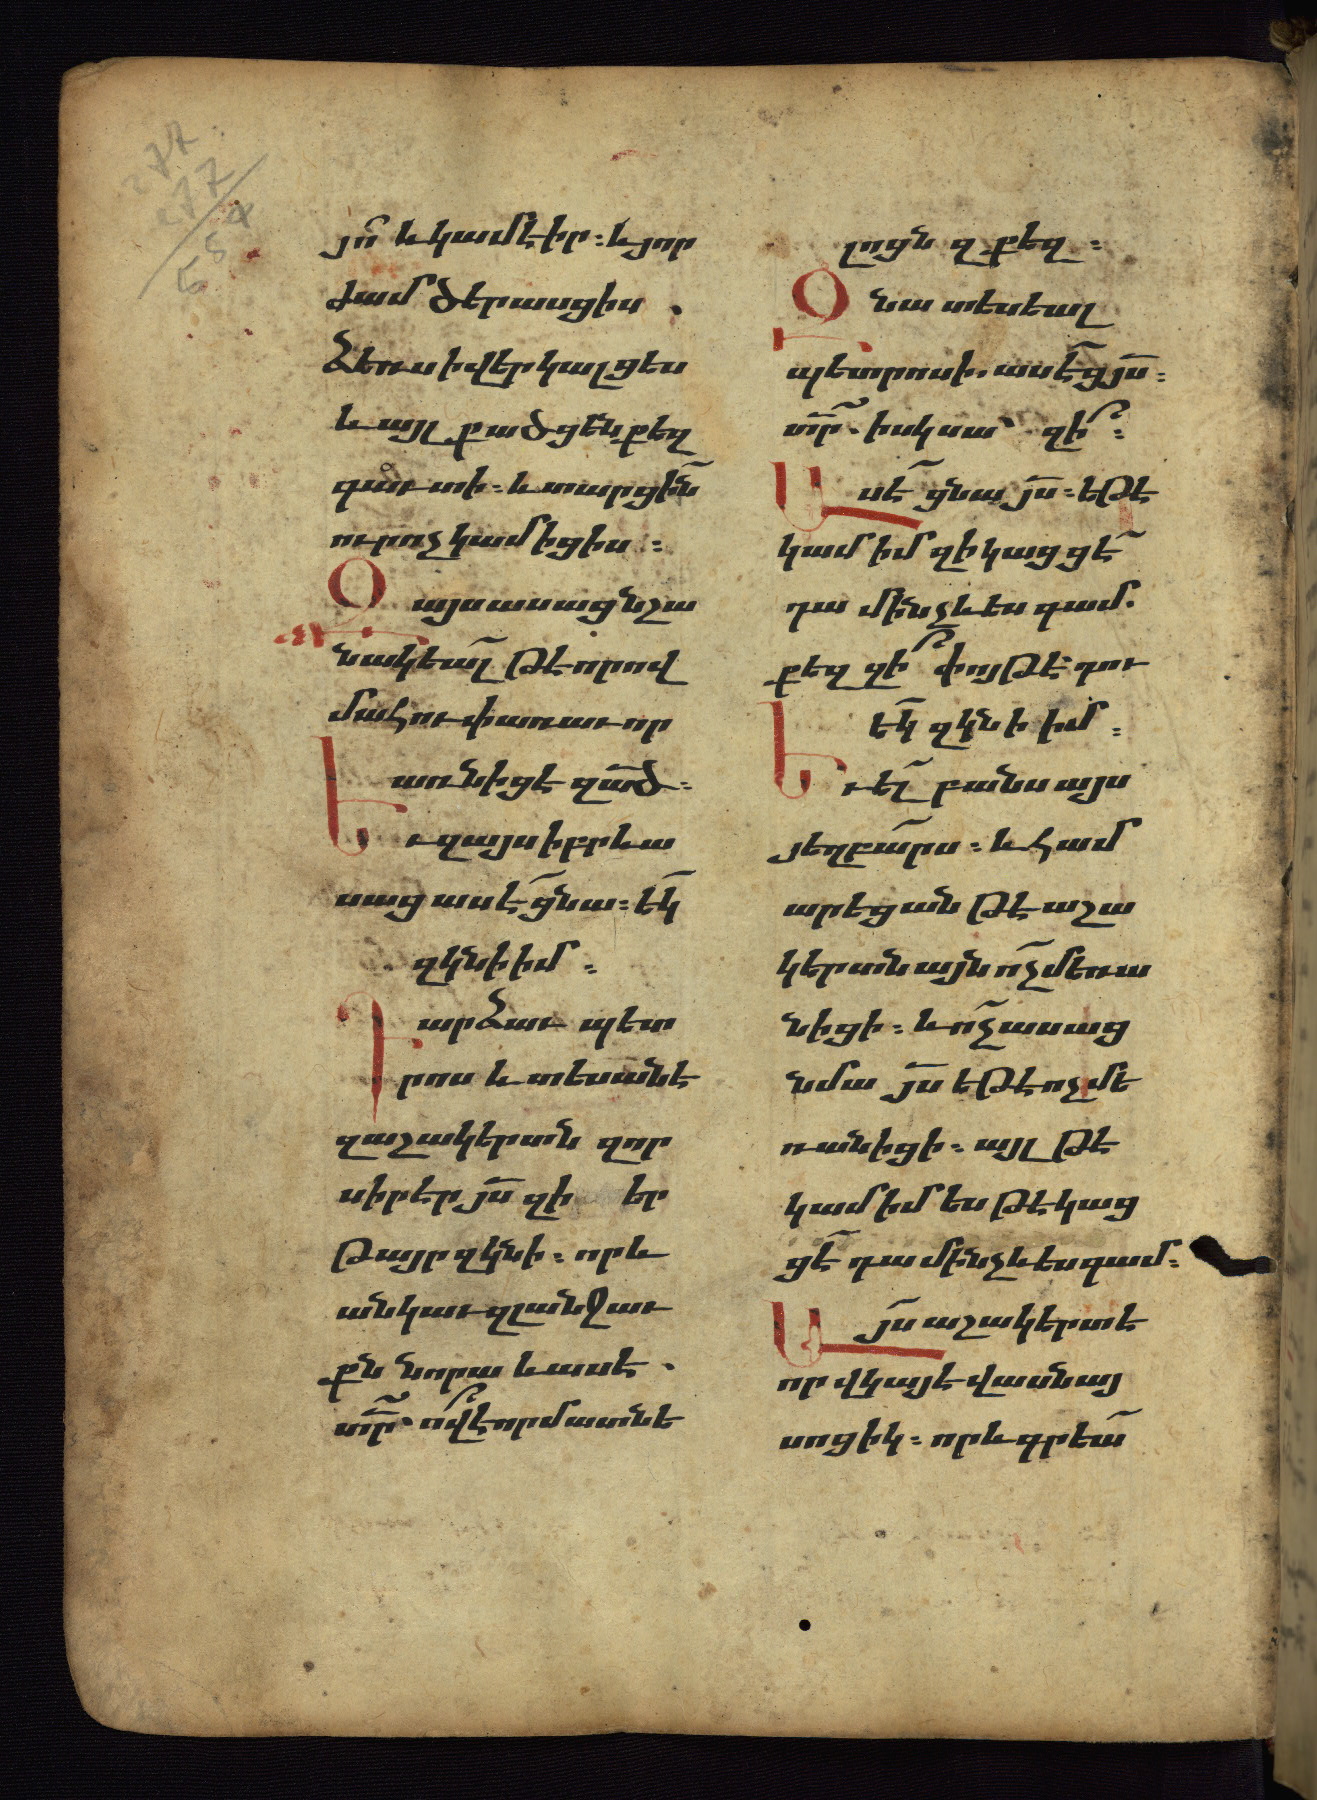 277
277
554
յո՞ և կամէիր։ և յոր
ժամ ծերասցիս .
Ձեռս ի վեր կալցես
և այլ ք ածցեն զքեզ
գաւտի։ և տարցի՜ն
ուր ոչ կամիցիս ։
Զ այս ասաց նշա
նակեա՜լ թէ որով
մահու փառաւոր
առնիցէ զա՜ծ։
Եւ զայս իբրև ա
սաց ասէ ց՜նա։ ե՜կ
զկնի իմ ։
Դարձաւ պետ
րոս և տեսանէ
զաշակերտն զոր
սիրէր յս՜ զի եր
թայր զկնի։ որ և
անկաւ զլանջաւ
քն նորա և ասէ .
տր՜. ո՞վ է որ մատնե
լոցն զքեզ ։
Զ նա տեսեալ
պետրոսի. ասէ ց՜յս՜։
տր՜. իսկ սա՝ զի՞ ։
Ա սէ՜ ցնա յս՜։ եթէ
կամ իմ զի կացցէ՜
դա մինչև ես գամ.
քեզ զի՞ փոյթ է՝ դու
ե՜կ զկնի իմ ։
Եւ ել՜ բանս այս
յեղբա՜րս։ և համ
արեցան թէ աշա
կերտն այն ո՜չ մեռա
նիցի։ և ո՜չ ասաց
նմա յս՜ եթէ ոչ մե
ռանիցի։ այլ թէ
կամ իմ ես թէ կաց
ցէ՜ դա մինչև ես գամ։
Ա յս՜ աշակերտ է
որ վկայէ վասն այ
սոցիկ։ որ և գրեա՜